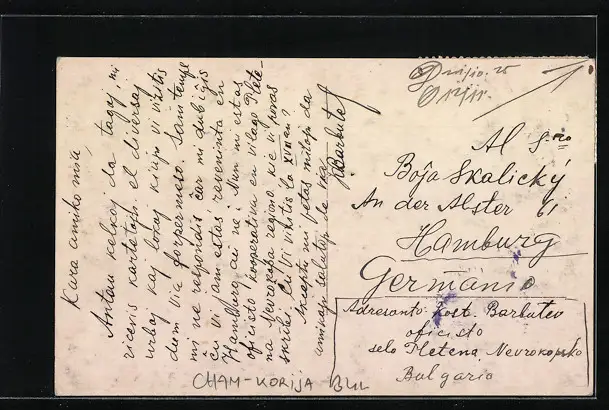 Kara amiko mia,
Antaŭ kelkaj da tagoj, mi
ricevis kartetojn el diversaj
urboj kaj lokoj kiujn vi vizitis
dum via forpermeso. Samtempe
mi ne respondis ĉar mi dubiĝis
ĉu vi jam estas reveninta en
Hamburg aŭ ne. Nun mi estas
oficisto kooperativa en vilaĝo Plete-
na Nevrokopa regiono kie vi povas
skribi. Ĉu vi vizitis la XVIII an?
Akceptu mi petas milojn da
amikaj salutoj de Kost.
Barbutev
Al S-ro
Boĵa Skalický
An der Alster 61
Hamburg
Germanio
Adresanto Kost. Barbutev
oficisto
selo Pletena Nevrokopsko
Bulgario
CHAM-KORIJA BUL